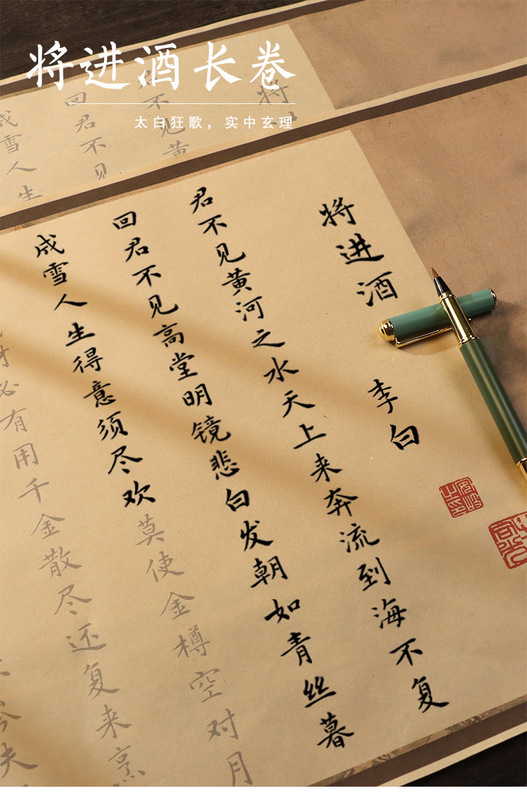 将进酒长卷
太白狂歌，实中玄理
将
君不见黄
回君不见
成雪人生
将进酒 李白
君不见黄河之水天上来奔流到海不复
回君不见高堂明镜悲白发朝如青丝暮
成雪人生得意须尽欢莫使金樽空对月
材必有用千金散尽还复来烹
岑夫